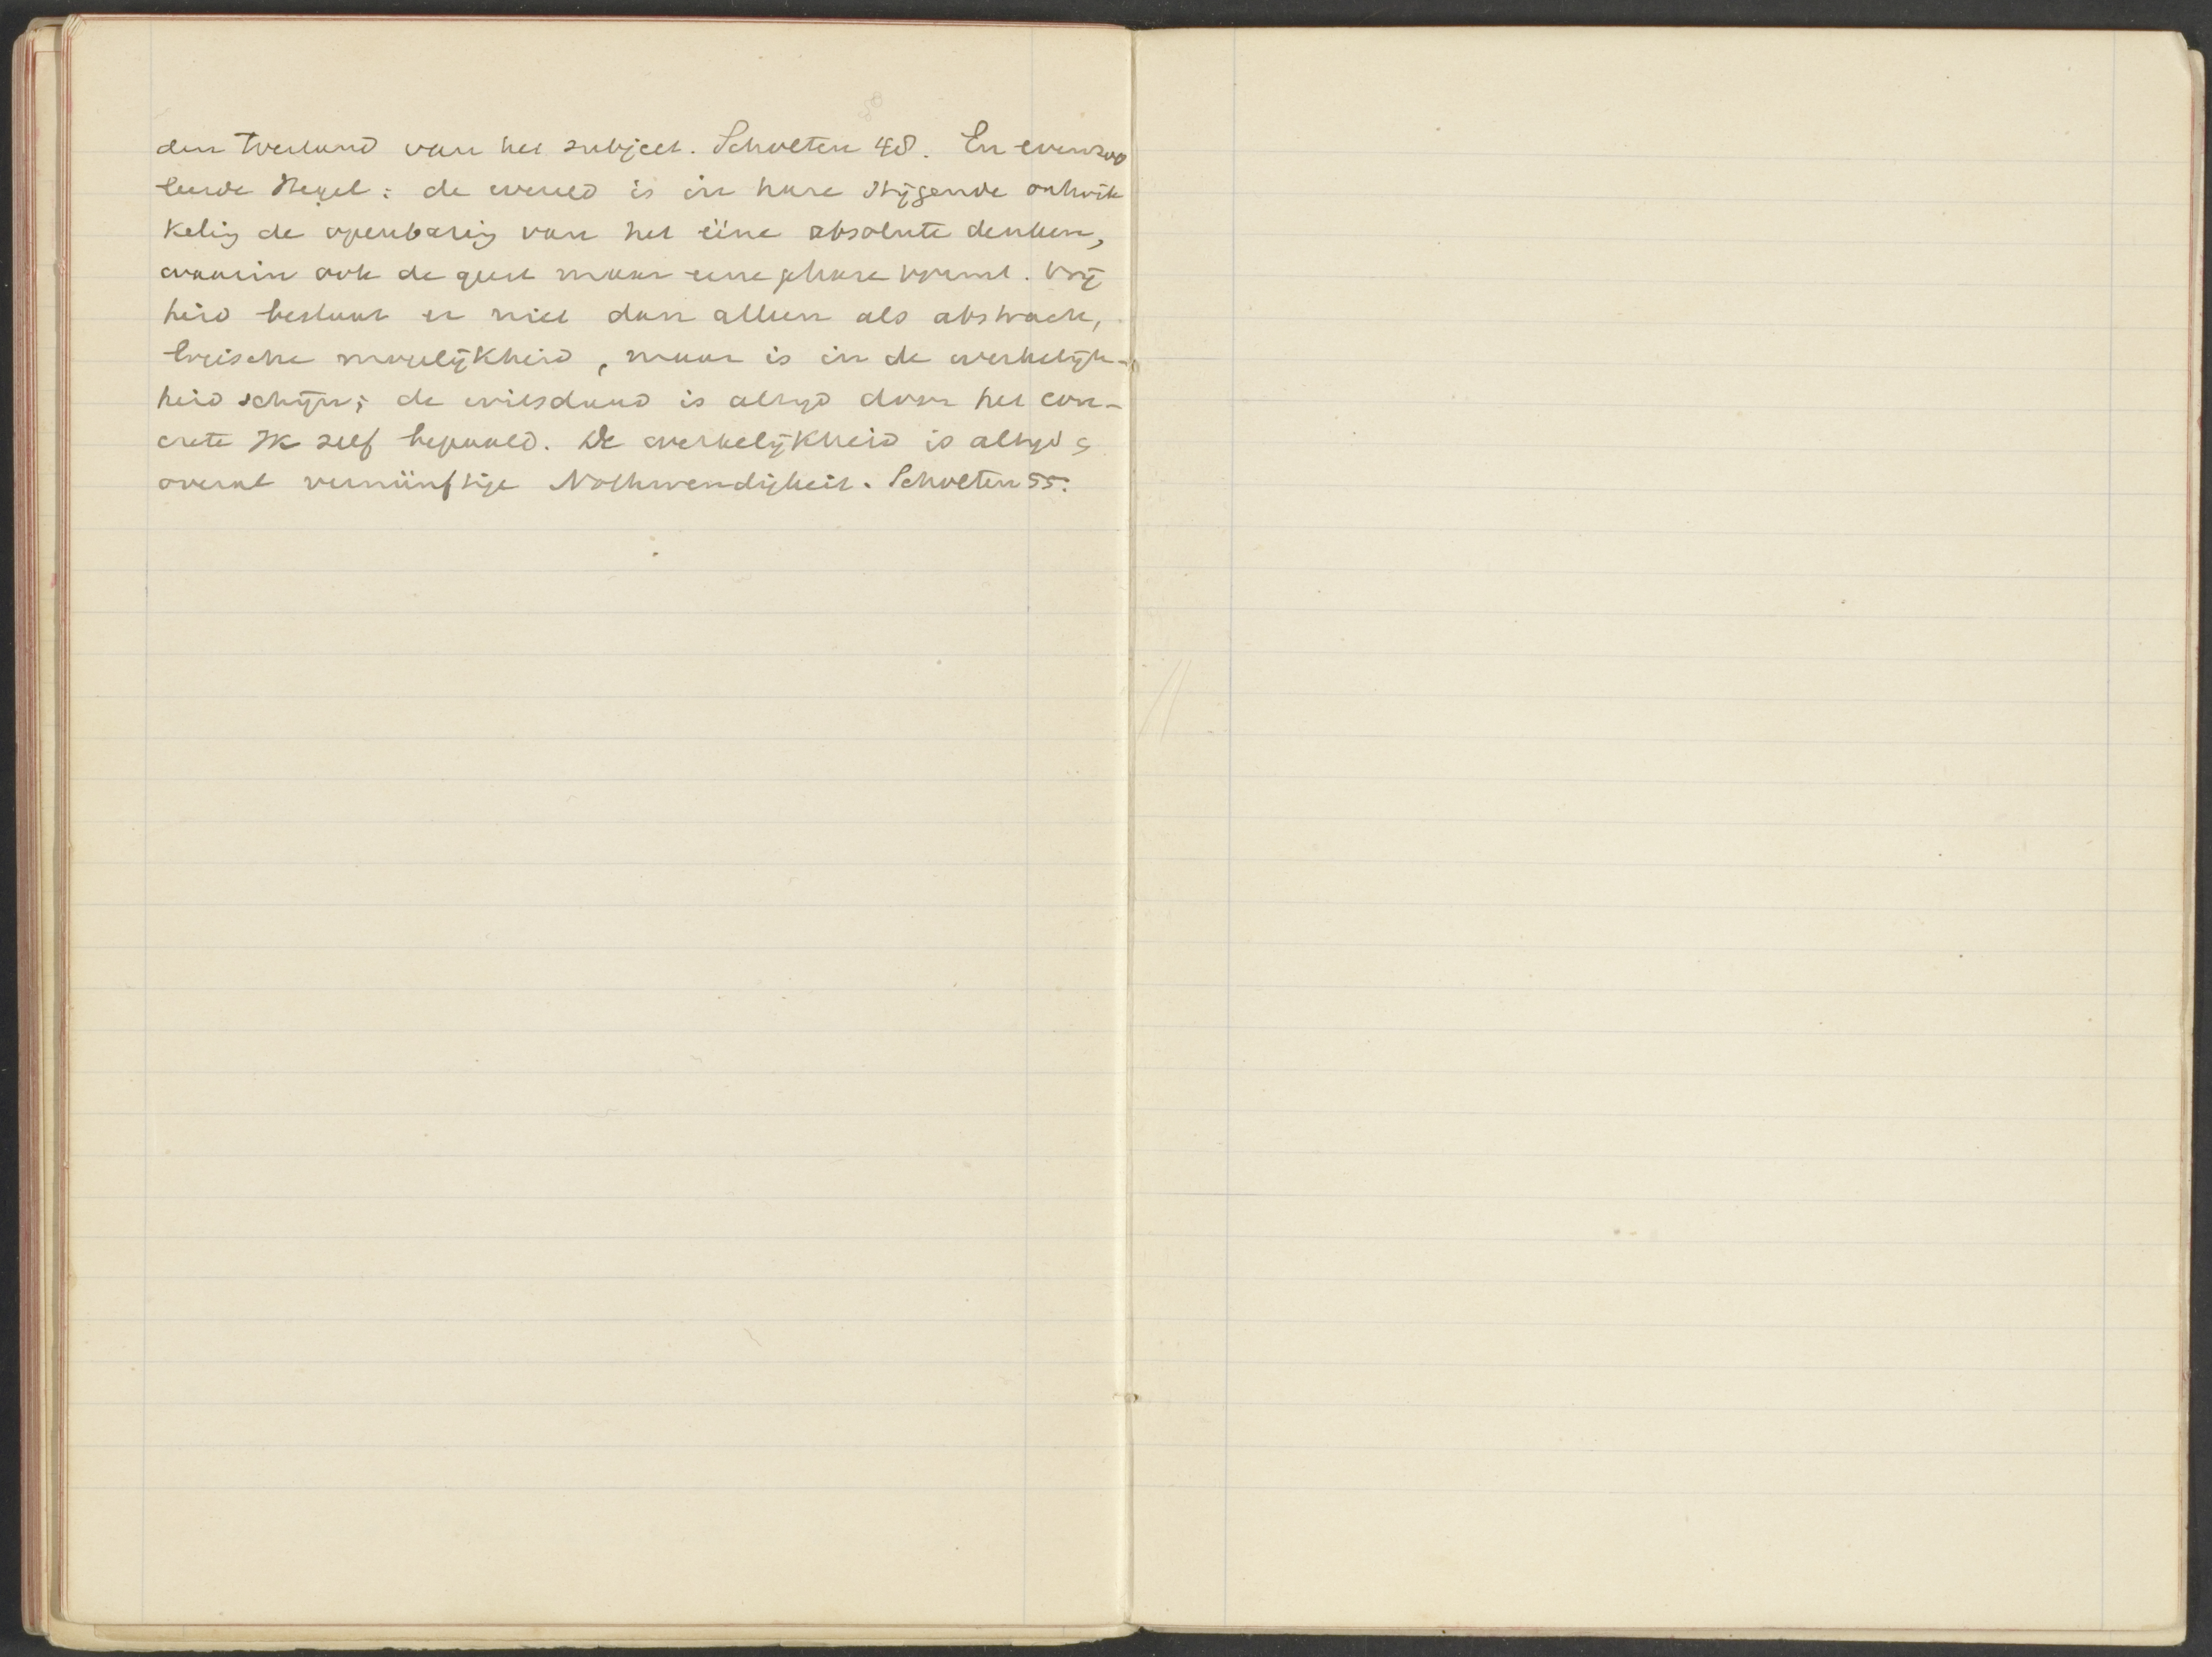 den toestand van het subject. Scholten 48. En evenzoo
leerde Hegel: de wereld is in hare stijgende ontwik
keling de openbaring van het ééne absolute denken,
waarin ook de geest maar eene phase vormt. Vrij
heid bestaat er niet dan alleen als abstracte,
logische mogelijkheid, maar is in de werkelijk-
heid schijn; de wilsdaad is altijd door het con-
crete Ik zelf bepaald. De werkelijkheid is altijd &
overal vernünftige Nothwendigkeit. Scholten 55.